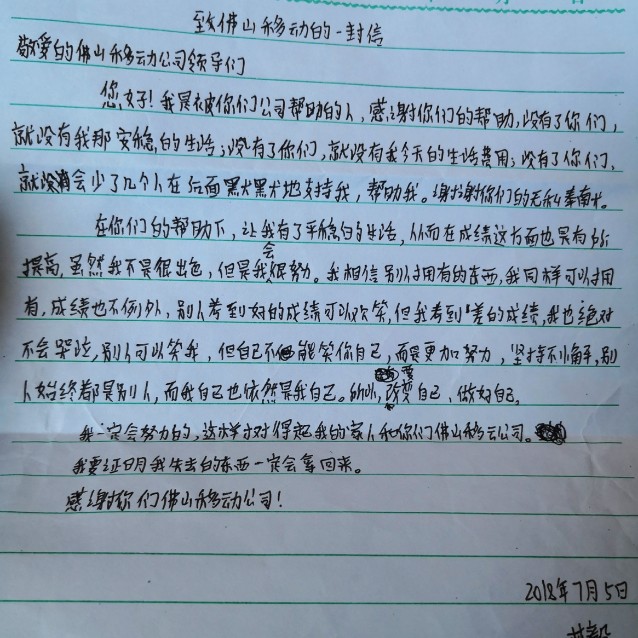 致佛山移动的一封信
敬爱的佛山移动公司领导们
您好！我是被你们公司帮助的人，感谢你们的帮助，没有了你们，
就没有我那安稳的生活；没有了你们，就没有我今天的生活费用；没有了你们，
就会少了几个人在后面默默地支持我，帮助我。谢谢你们的无私奉献。
在你们的帮助下，让我有了平稳的生活，从而在成绩这方面也是有所
提高，虽然我不是很出色，但是我会很努力。我相信别人拥有的东西，我同样可以拥
有，成绩也不例外，别人考到好的成绩可以欢笑，但我考到差的成绩，我也绝对
不会哭泣，别人可以笑我，但自己不能笑你自己，而是更加努力，坚持不懈，别
人始终都是别人，而我自己也依然是我自己。所以，要改变自己，做好自己。
我一定会努力的，这样才对得起我的家人和你们佛山移动公司。
我要证明我失去的东西一定会拿回来。
感谢你们佛山移动公司！
2018年7月5日